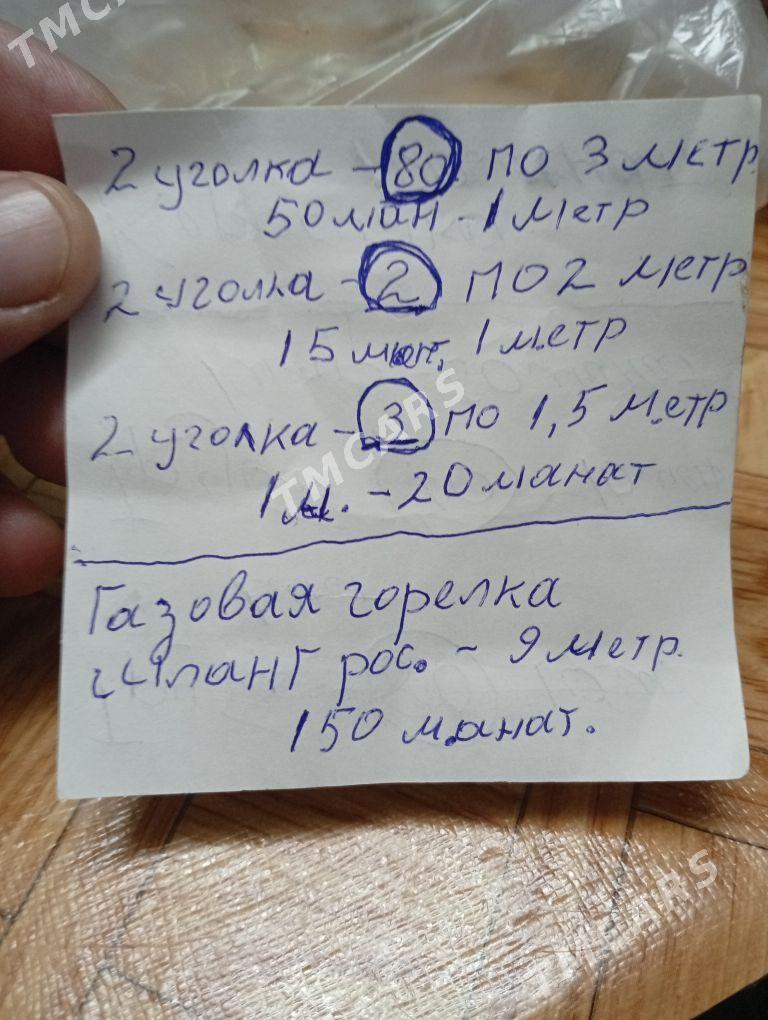 TMCARS
2 уголка - 80 по 3 метр
50 ман - 1 метр
2 уголка - 2 по 2 метр
15 мант, 1 метр
2 уголка - 3 по 1,5 метр
TMCARS
1 м. - 20 манат
Газовая горелка
шланг рос. - 9 метр.
150 манат.
TMCARS